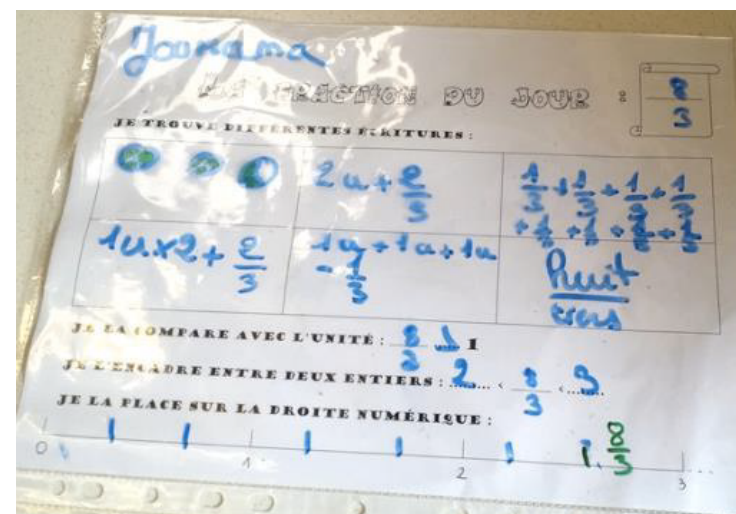 Joumana
LA FRACTION DU JOUR : 8/3
JE TROUVE DIFFÉRENTES ÉCRITURES :
2u + 2/3
1/3 + 1/3 + 1/3 + 1/3
+ 1/3 + 1/3 + 1/3 + 1/3
1u x 2 + 2/3
1u + 1u + 1u
- 1/3
huit
JE LA COMPARE AVEC L'UNITÉ : 1
JE L'ENCADRE ENTRE DEUX ENTIERS : 2 < 8/3 < 3
JE LA PLACE SUR LA DROITE NUMÉRIQUE :
0 1 2 8/3 3